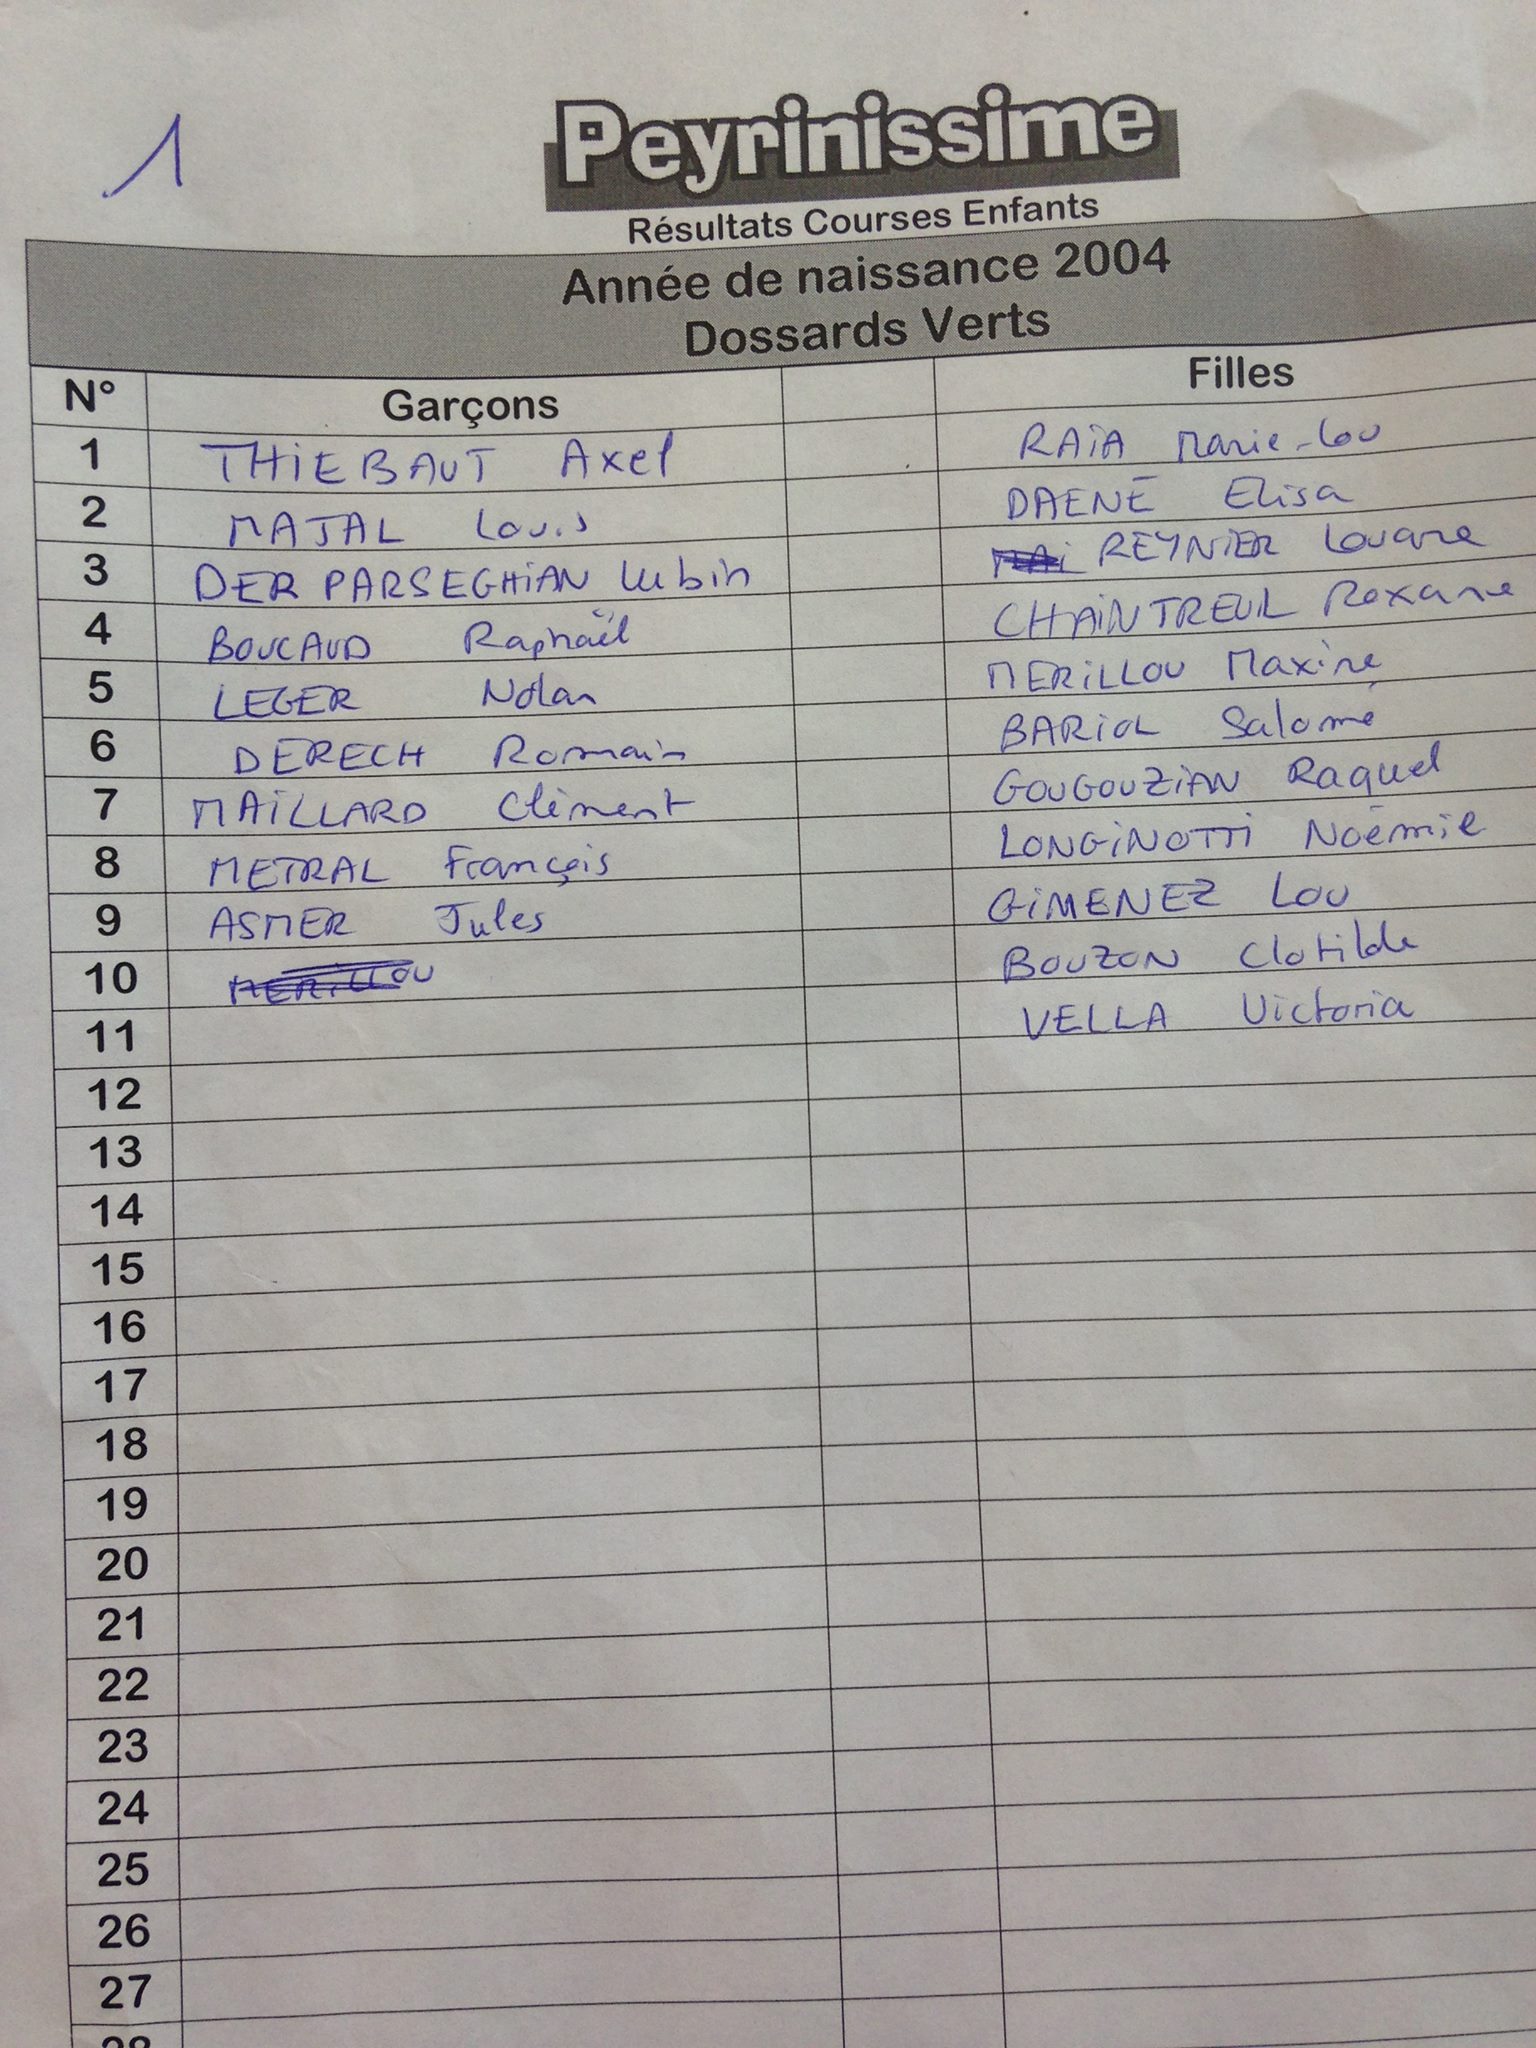 1
Peyrinissime
Résultats Courses Enfants
Année de naissance 2004
Dossards Verts
N° Garçons Filles
1 THIEBAUT Axel RAIA Marie-Lou
2 MAJAL Louis DAENÉ Elisa
3 DER PARSEGHIAN Lubin REYNIER Louane
4 BOUCAUD Raphaël CHAINTREUIL Roxane
5 LEGER Nolan MERILLOU Maxine
6 DERECH Romain BARIOL Salomé
7 MAILLARD Clément GOUGOUZIAN Raquel
8 METRAL François LONGINOTTI Noémie
9 ASMER Jules GIMENEZ Lou
10 MERILLOU BOUZON Clotilde
11 VELLA Victoria
12
13
14
15
16
17
18
19
20
21
22
23
24
25
26
27
28